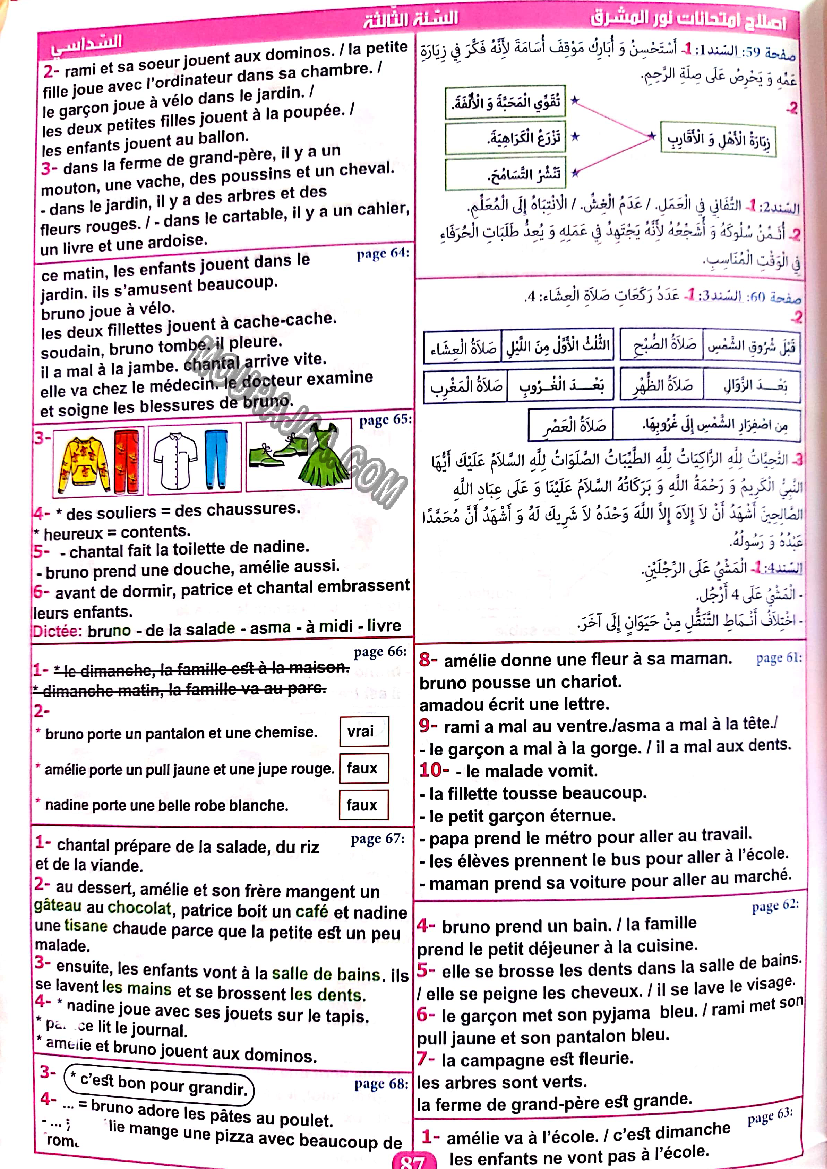 اصلاح امتحانات نور المشرق
السّنة الثّالثة
السّداسي
صفحة 59: السّند1: 1- أَسْتَحْسِنُ وَ أُبَارِكُ مَوْقِفَ أُسَامَةَ لِأَنَّهُ فَكَّرَ فِي زِيَارَةِ
عَمِّهِ وَ يَحْرِصُ عَلَى صِلَةِ الرَّحِمِ.
2-
زِيَارَةُ الْأَهْلِ وَ الْأَقَارِبِ
تُقَوِّي الْمَحَبَّةَ وَ الْأُلْفَةَ.
تَزْرَعُ الْكَرَاهِيَّةَ.
تَنْشُرُ التَّسَامُحَ.
السّند2: 1- التَّفَانِي فِي الْعَمَلِ. / عَدَمُ الْغِشِّ. / الْانْتِبَاهُ إِلَى الْمُعَلِّمِ.
2- أُثَمِّنُ سُلُوكَهُ وَ أُشَجِّعُهُ لِأَنَّهُ يَجْتَهِدُ فِي عَمَلِهِ وَ يُعِدُّ طَلَبَاتِ الْحُرَفَاءِ
فِي الْوَقْتِ الْمُنَاسِبِ.
صفحة 60: السّند3: 1- عَدَدُ رَكَعَاتِ صَلَاةِ الْعِشَاءِ: 4.
2-
قَبْلَ شُرُوقِ الشَّمْسِ صَلَاةُ الصُّبْحِ
الثُّلُثُ الْأَوَّلُ مِنَ اللَّيْلِ صَلَاةُ الْعِشَاءِ
بَعْدَ الزَّوَالِ صَلَاةُ الظُّهْرِ
بَعْدَ الْغُرُوبِ صَلَاةُ الْمَغْرِبِ
مِنِ اصْفِرَارِ الشَّمْسِ إِلَى غُرُوبِهَا. صَلَاةُ الْعَصْرِ
3- التَّحِيَّاتُ لِلَّهِ الزَّاكِيَاتُ لِلَّهِ الطَّيِّبَاتُ الصَّلَوَاتُ لِلَّهِ السَّلَامُ عَلَيْكَ أَيُّهَا
النَّبِيُّ الْكَرِيمُ وَ رَحْمَةُ اللَّهِ وَ بَرَكَاتُهُ السَّلَامُ عَلَيْنَا وَ عَلَى عِبَادِ اللَّهِ
الصَّالِحِينَ أَشْهَدُ أَنْ لَا إِلَاهَ إِلاَّ اللَّهَ وَحْدَهُ لَا شَرِيكَ لَهُ وَ أَشْهَدُ أَنَّ مُحَمَّدًا
عَبْدُهُ وَ رَسُولُهُ.
السّند4: 1- الْمَشْيُ عَلَى الرِّجْلَيْنِ.
- الْمَشْيُ عَلَى 4 أَرْجُلٍ.
- اخْتِلَافُ أَنْمَاطِ التَّنَقُّلِ مِنْ حَيَوَانٍ إِلَى آخَرَ.
page 61:
8- amélie donne une fleur à sa maman.
bruno pousse un chariot.
amadou écrit une lettre.
9- rami a mal au ventre./asma a mal à la tête./
- le garçon a mal à la gorge. / il a mal aux dents.
10- - le malade vomit.
- la fillette tousse beaucoup.
- le petit garçon éternue.
- papa prend le métro pour aller au travail.
- les élèves prennent le bus pour aller à l'école.
- maman prend sa voiture pour aller au marché.
page 62:
4- bruno prend un bain. / la famille
prend le petit déjeuner à la cuisine.
5- elle se brosse les dents dans la salle de bains.
/ elle se peigne les cheveux. / il se lave le visage.
6- le garçon met son pyjama bleu. / rami met son
pull jaune et son pantalon bleu.
7- la campagne est fleurie.
les arbres sont verts.
la ferme de grand-père est grande.
page 63:
1- amélie va à l'école. / c'est dimanche
les enfants ne vont pas à l'école.
2- rami et sa soeur jouent aux dominos. / la petite
fille joue avec l'ordinateur dans sa chambre. /
le garçon joue à vélo dans le jardin. /
les deux petites filles jouent à la poupée. /
les enfants jouent au ballon.
3- dans la ferme de grand-père, il y a un
mouton, une vache, des poussins et un cheval.
- dans le jardin, il y a des arbres et des
fleurs rouges. / - dans le cartable, il y a un cahier,
un livre et une ardoise.
page 64:
ce matin, les enfants jouent dans le
jardin. ils s'amusent beaucoup.
bruno joue à vélo.
les deux fillettes jouent à cache-cache.
soudain, bruno tombe. il pleure.
il a mal à la jambe. chantal arrive vite.
elle va chez le médecin. le docteur examine
et soigne les blessures de bruno.
page 65:
3-
4- * des souliers = des chaussures.
* heureux = contents.
5- - chantal fait la toilette de nadine.
- bruno prend une douche, amélie aussi.
6- avant de dormir, patrice et chantal embrassent
leurs enfants.
Dictée: bruno - de la salade - asma - à midi - livre
page 66:
1- * le dimanche, la famille est à la maison.
* dimanche matin, la famille va au parc.
2-
* bruno porte un pantalon et une chemise. vrai
* amélie porte un pull jaune et une jupe rouge. faux
* nadine porte une belle robe blanche. faux
page 67:
1- chantal prépare de la salade, du riz
et de la viande.
2- au dessert, amélie et son frère mangent un
gâteau au chocolat, patrice boit un café et nadine
une tisane chaude parce que la petite est un peu
malade.
3- ensuite, les enfants vont à la salle de bains. ils
se lavent les mains et se brossent les dents.
4- * nadine joue avec ses jouets sur le tapis.
* pa ce lit le journal.
* amélie et bruno jouent aux dominos.
page 68:
3- * c'est bon pour grandir.
4- ... = bruno adore les pâtes au poulet.
- ... lie mange une pizza avec beaucoup de
rom
87
MOURAJAA.COM